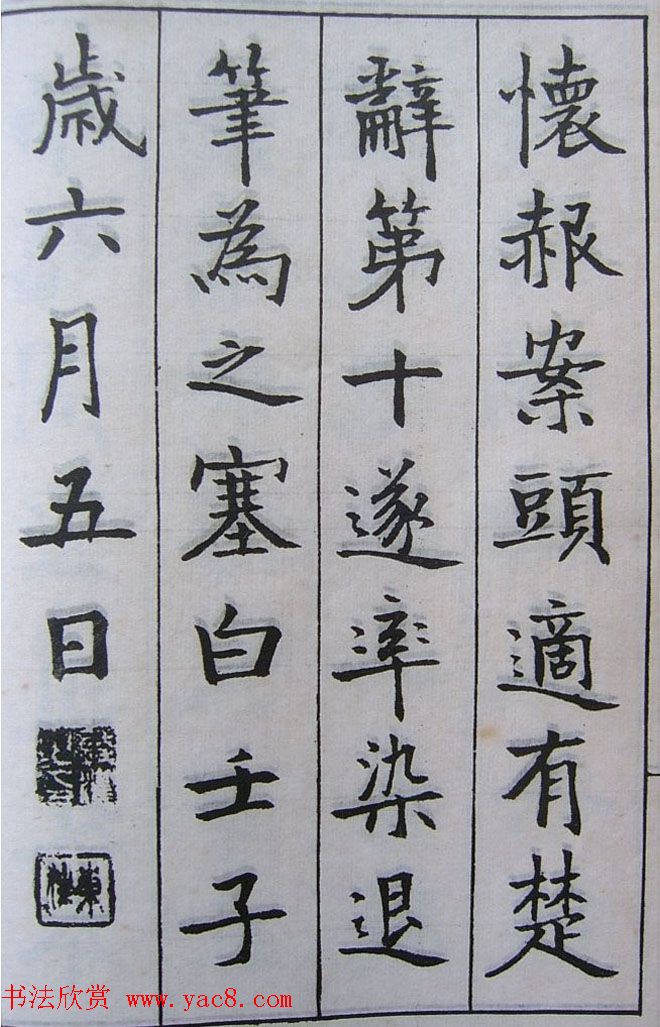 懷赧案頭適有楚
辭第十遂率染退
筆為之塞白壬子
歲六月五日
书法欣赏 www.yac8.com